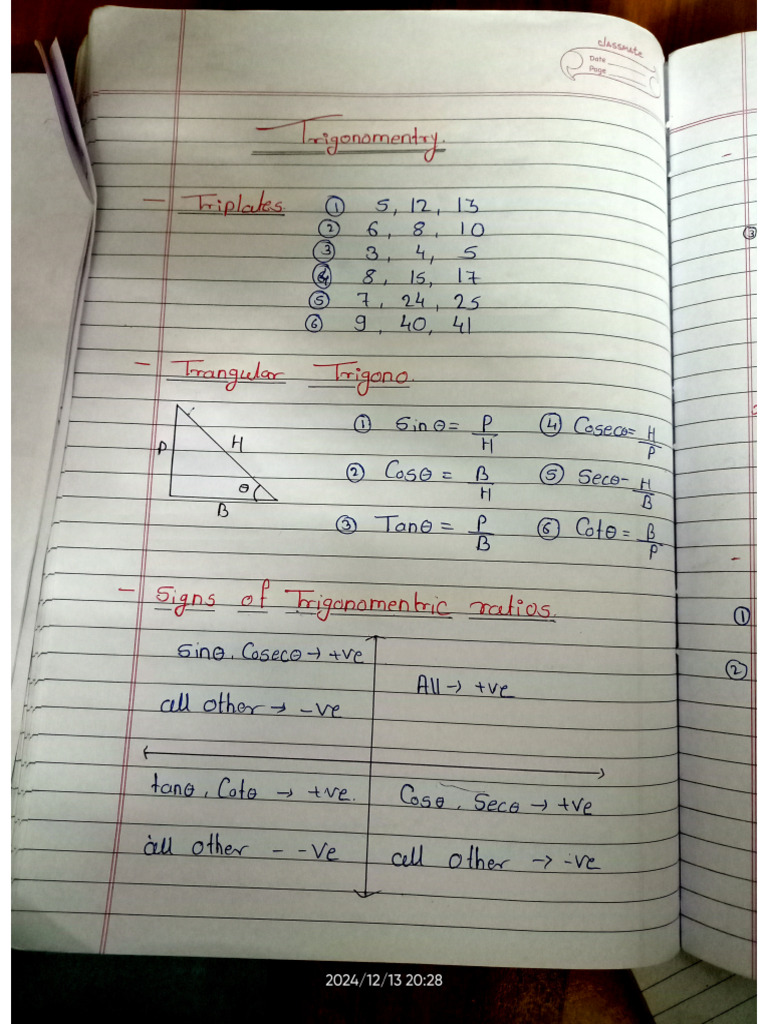 classmate
Date
Page
Trigonomentry.
- Triplates. ① 5, 12, 13
② 6, 8, 10
③ 3, 4, 5
④ 8, 15, 17
⑤ 7, 24, 25
⑥ 9, 40, 41
- Trangular Trigono.
P H θ B
① Sinθ = P/H ④ Cosecθ = H/P
② Cosθ = B/H ⑤ Secθ - H/B
③ Tanθ = P/B ⑥ Cotθ = B/P
- Signs of Trigonomentric ratios.
Sinθ, Cosecθ → +ve
All → +ve
all other → -ve
tanθ, Cotθ → +ve. Cosθ, Secθ → +ve
all other - -ve all other → -ve
③
①
②
2024/12/13 20:28